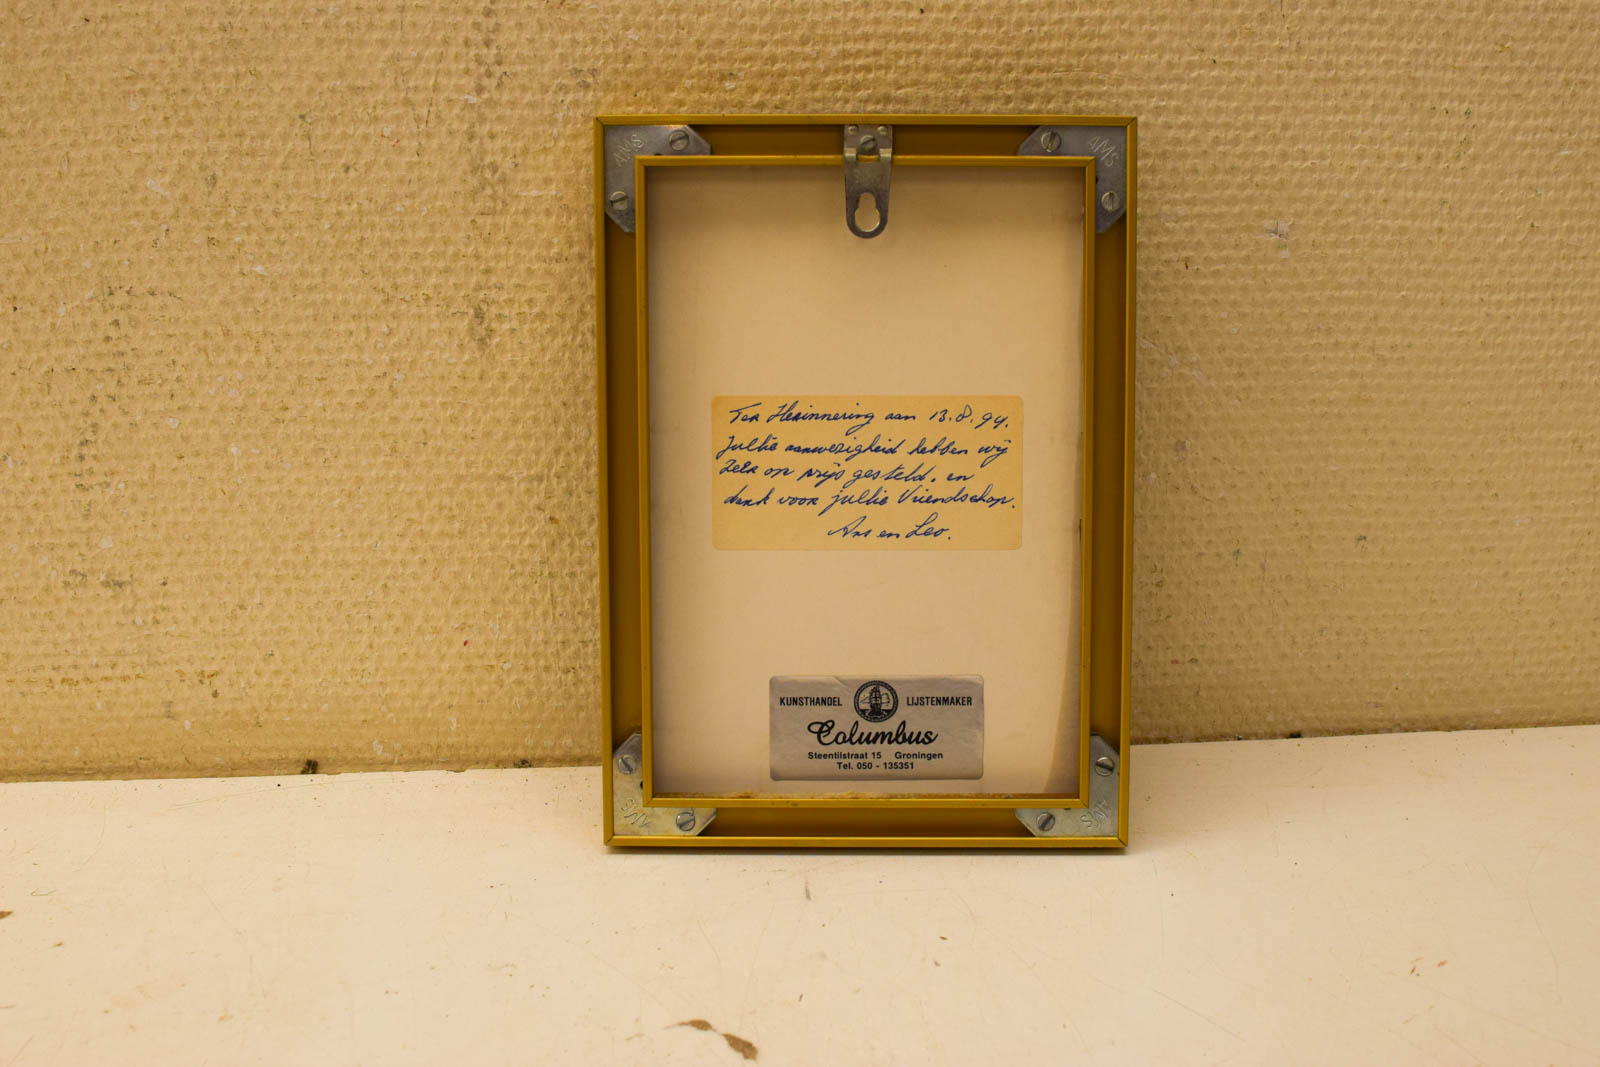 AMS
AMS
Ter Herinnering aan 13.8.94.
Jullie aanwezigheid hebben wij
zeer op prijs gesteld. en
dank voor jullie Vriendschap.
Ans en Leo.
KUNSTHANDEL LIJSTENMAKER
Columbus
Steentilstraat 15 Groningen
Tel. 050 - 135351
AMS
AMS